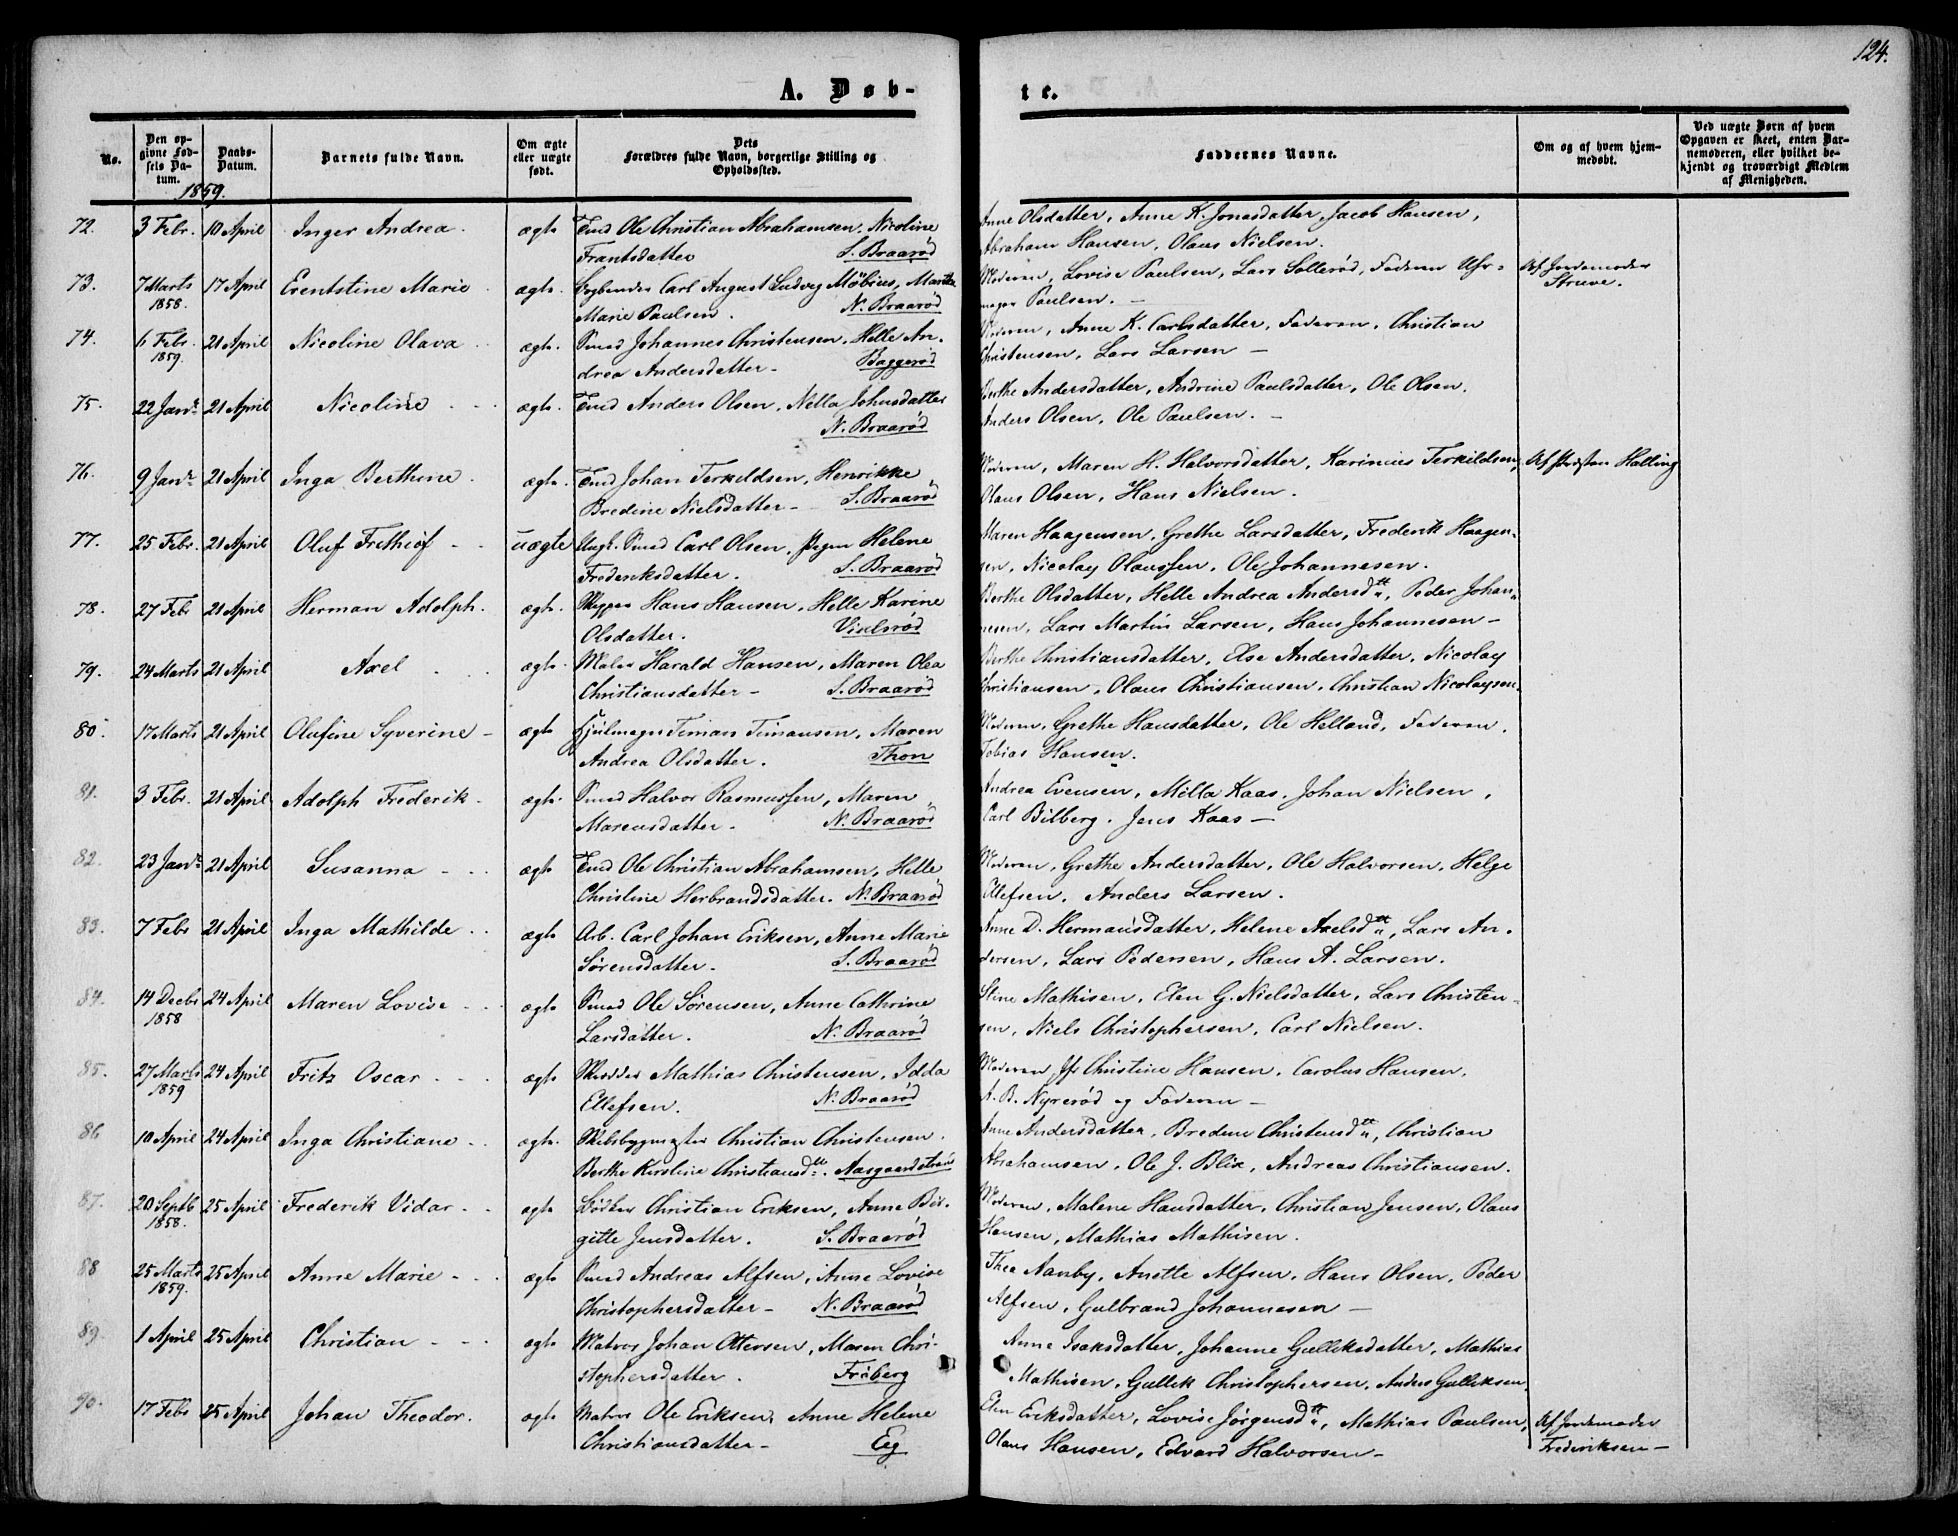 124.
A. Døb-
te.
No.
Den opgivne Fødsels Datum.
Daabs-Datum.
Barnets fulde Navn.
Om ægte eller uægte født.
Dets Forældres fulde Navn, borgerlige Stilling og Opholdssted.
Faddernes Navne.
Om og af hvem hjemmedøbt.
Ved uægte Børn af hvem Opgaven er skeet, enten Barnemoderen, eller hvilket bekjendt og troværdigt Medlem af Menigheden.
1859.
72. 3 Febr. 10 April Inger Andrea. ægte Tmd Ole Christian Abrahamsen. Nicoline Anne Olsdatter, Anne K. Jonasdatter, Jacob Hansen,
Frantsdatter S. Braarød Abraham Hansen, Olaus Nielsen.
73. 7 Marts 17 April Erentstine Marie. ægte. Carl August Ludvig Möbius, Marthe Moderen, Lovise Paulsen, Lars Solterød, Faderen Uhr= Af Jordemoder
1858. Marie Paulsen. N. Braarød mager Paulsen. — Struve.
74. 6 Febr. 21 April Nicoline Olava ægte. Smed Johannes Christensen, Helle An- Moderen, Anne K. Carlsdatter, Faderen, Christian
1859. drea Andersdatter - Baggerød Christensen, Lars Larsen —
75. 22 Janr 21 April Nicoline - - ægte. Tmd Anders Olsen, Nella Johnsdatter Berthe Andersdatter, Andrine Paulsdatter, Ole Olsen.
N. Braarød Anders Olsen, Ole Paulsen. —
76. 9 Janr 21 April Inga Berthine. ægte. Tmd Johan Terkildsen, Henrikke Moderen, Maren H. Halvorsdatter, Karinius Terkildsen, Af Præsten Halling
Bredine Nielsdatter - S. Braarød Olaus Olsen, Hans Nielsen.
77. 25 Febr. 21 April Oluf Frithiof - - uægte Ungk. Smed Carl Olsen, Pigen Helene Maren Haagensen, Grethe Larsdatter, Frederik Haagen-
Frederiksdatter. S. Braarød sen, Nicolay Olaussen, Ole Johannesen.
78. 27 Feb 21 April Herman Adolph. ægte. Skipper Hans Hansen, Helle Karine Berthe Olsdatter, Helle Andrea Andersdtr, Peder Johan-
Olsdatter. nesen, Lars Martin Larsen, Hans Johannesen -
79. 24 Marts 21 April Axel - - ægte. Maler Harald Hansen, Maren Olea Berthe Christiansdatter, Else Andersdatter, Nicolay
Christiansdatter - S. Braarød Christiansen, Olaus Christiansen, Christian Nicolaysen.
80. 17 Marts 21 April Olufine Syverine - ægte Hjulmager Timan Timansen, Maren Moderen, Grethe Hansdatter, Ole Helland, Faderen,
Andrea Olsdatter. Thon Tobias Hansen.
81. 3 Febr. 21 April Adolph Frederik. ægte. Smed Halvor Rasmussen, Maren Andrea Evensen, Milla Kaas, Johan Nielsen,
Marensdatter. N. Braarød Carl Bilberg. Jens Kaas —
82. 23 Janr 21 April Susanna - - ægte Tmd Ole Christian Abrahamsen, Helle Moderen, Grethe Andersdatter, Ole Halvorsen, Helge
Christine Herbrandsdatter. N. Braarød Ellefsen, Anders Larsen.
83. 7 Febr 21 April Inga Mathilde. ægte Arb. Carl Johan Eriksen, Anne Marie Anne D. Hermansdatter, Helene Axelsdtr, Lars An-
Sørensdatter. S. Braarød dersen, Lars Pedersen, Hans A. Larsen.
84. 14 Decbr 24 April Maren Lovise - ægte Smed Ole Sørensen, Anne Cathrine Stine Mathisen, Elen G. Nielsdatter, Lars Christen-
1858 Larsdatter. N. Braarød sen, Niels Christophersen, Carl Nielsen.
85. 27 Marts 24 April Fritz Oscar - - ægte Skrædder Mathias Christensen, Idda Moderen, Jfr Christine Hansen, Carolus Hansen,
1859 Ellefsen. N. Braarød A. B. Nyrerød og Faderen -
86 10 April 24 April Inga Christiane. ægte. Skibsbygmester Christian Christensen. Anne Andersdatter, Bredine Christensdtr, Christian
Berthe Kirstine Christiansdtr. Aasgaardstrand Abrahamsen, Ole J. Blix, Andreas Christiansen.
87. 20 Septb 25 April Frederik Vidar - ægte Bødker Christian Eriksen, Anne Bir- Moderen, Malene Hansdatter, Christian Jensen, Olaus
1858. gitte Jensdatter. S. Braarød Hansen, Mathias Mathisen.
88 25 Marts 25 April Anne Marie - ægte Smed Andreas Alfsen, Anne Lovise Thea Nanby, Anette Alfsen, Hans Olsen, Peder
1859. Christophersdatter - N. Braarød Alfsen, Gulbrand Johannesen —
89. 1 April 25 April Christian - - ægte Matros Johan Ottersen, Maren Chri- Anne Isaksdatter, Johanne Gulliksdatter, Mathias
stophersdatter. Frøberg Mathisen, Gullik Christophersen, Anders Gulliksen.
90. 17 Febr 25 April Johan Theodor. ægte Matros Ole Eriksen, Anne Helene Elen Eriksdatter, Lovise Jørgensdtr, Mathias Paulsen, Af Jordemoder
Christiansdatter - Eeg Olaus Hansen, Edvard Halvorsen - Frederiksen —